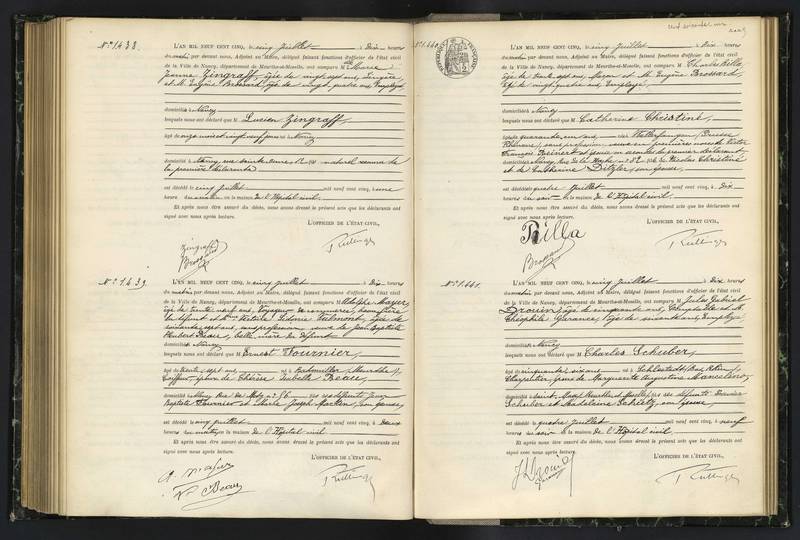 N° 1438.
L'AN MIL NEUF CENT CINQ, le cinq juillet à Dix heures
du matin par devant nous, Adjoint au Maire, délégué faisant fonctions d'officier de l'état civil
de la Ville de Nancy, département de Meurthe-et-Moselle, ont comparu M Marie
Jeanne Zingraff, âgée de vingt sept ans, lingère
et M. Eugène Brossard, âgé de vingt quatre ans, Employé
domiciliés à Nancy
lesquels nous ont déclaré que M Lucien Zingraff
âgé de onze mois et vingt neuf jours né à Nancy
domicilié à Nancy, rue fils naturel reconnu de
la première déclarante
est décédé le cinq juillet mil neuf cent cinq, à une
heure du matin en la maison de l'Hôpital civil
Et après nous être assuré du décès, nous avons dressé le présent acte que les déclarants ont
signé avec nous après lecture.
L'OFFICIER DE L'ÉTAT CIVIL,
Zingraff
Brossard
N° 1439.
L'AN MIL NEUF CENT CINQ, le cinq juillet à Dix heures
du matin par devant nous, Adjoint au Maire, délégué faisant fonctions d'officier de l'état civil
de la Ville de Nancy, département de Meurthe-et-Moselle, ont comparu M Adolphe Mayer
âgé de trente neuf ans, Voyageur de commerce, beau frère
du défunt et Victoire âgée de
soixante sept ans, sans profession veuve de Jean Baptiste
Hubert Beau, belle mère du défunt
domiciliés à Nancy
lesquels nous ont déclaré que M Ernest Fournier
âgé de trente sept ans né à Badonviller, Meurthe
Coiffeur, époux de Thérèse Isabelle Beau
domicilié à Nancy Rue de Metz n° 76 fils des défunts Jean
Baptiste Fournier et Marie Joseph son épouse
est décédé le cinq juillet mil neuf cent cinq, à Deux
heures du matin en la maison de l'Hôpital civil
Et après nous être assuré du décès, nous avons dressé le présent acte que les déclarants ont
signé avec nous après lecture.
L'OFFICIER DE L'ÉTAT CIVIL,
A. Mayer
Vve Beau
N° 1440
L'AN MIL NEUF CENT CINQ, le cinq juillet à Dix heures
du matin par devant nous, Adjoint au Maire, délégué faisant fonctions d'officier de l'état civil
de la Ville de Nancy, département de Meurthe-et-Moselle, ont comparu M Charles Billa
âgé de trente sept ans, Maçon et M. Eugène Brossard
âgé de vingt quatre ans, Employé,
domiciliés à Nancy
lesquels nous ont déclaré que M Catherine Christiné
âgée de quarante un ans née à (Prusse
Rhénane), sans profession veuve en premières noces de Victor
François Reinert et épouse en secondes du premier déclarant
domiciliée à Nancy, Rue de la n° 32 fille de Nicolas Christiné
et de Catherine Ditzler, son épouse
est décédée quatre juillet mil neuf cent cinq, à Dix
heures du soir en la maison de l'Hôpital civil
Et après nous être assuré du décès, nous avons dressé le présent acte que les déclarants ont
signé avec nous après lecture.
L'OFFICIER DE L'ÉTAT CIVIL,
Billa
Brossard
N° 1441.
L'AN MIL NEUF CENT CINQ, le cinq juillet à Dix heures
du matin par devant nous, Adjoint au Maire, délégué faisant fonctions d'officier de l'état civil
de la Ville de Nancy, département de Meurthe-et-Moselle, ont comparu M Jules Gabriel
Drouin, âgé de cinquante ans, Comptable et M.
Théophile Garance, âgé de soixante ans, Employé
domiciliés à Nancy
lesquels nous ont déclaré que M Charles Schuber
âgé de cinquante six ans né à Schlestadt (Bas Rhin)
Charpentier, époux de Marguerite Augustine
domicilié à Saint Max (Meurthe et Moselle) fils des défunts
Schuber et Madeleine son épouse
est décédé le quatre juillet mil neuf cent cinq, à neuf
heures du soir en la maison de l'Hôpital civil
Et après nous être assuré du décès, nous avons dressé le présent acte que les déclarants ont
signé avec nous après lecture.
L'OFFICIER DE L'ÉTAT CIVIL,